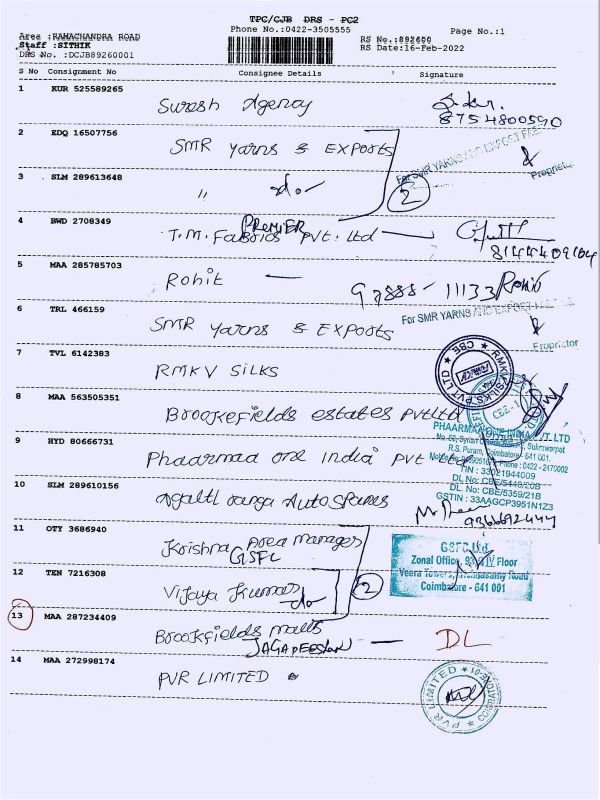 TPC/CJB DRS - PC2
Phone No.:0422-3505555
Page No.:1
Area : RAMACHANDRA ROAD
Staff : SITHIK
DRS No. :DCJB89260001
RS No.:892600
RS Date:16-Feb-2022
S No Consignment No Consignee Details Signature
1 KUR 525589265
Suresh Agency
8754800590
2 EDQ 16507756
SMR Yarns & Exports
For SMR YARNS AND EXPORT
Proprietor
3 SLM 289613648
" do
2
4 BWD 2708349
PREMIER
T.M. Fabrics Pvt. Ltd
5 MAA 285785703
Rohit
Rohit
6 TRL 466159
SMR Yarns & Exports
For SMR YARNS AND EXPORT
Proprietor
7 TVL 6142383
RMKV SILKS
RMKV SILKS PVT LTD CBE
8 MAA 563505351
Brookefields estates Pvt Ltd
9 HYD 80666731
Phaarmaa one India Pvt Ltd
PHAARMAA ONE INDIA PVT. LTD
R.S. Puram, Coimbatore - 641 001.
Phone : 0422 - 2470002
TIN : 33021944009
DL No: CBE/5448/20B
DL. No: CBE/5359/21B
GSTIN : 33AAGCP3951N1Z3
10 SLM 289610156
Auto Spares
11 OTY 3686940
Krishna Area Manager
GSFC
GSFC Ltd
Zonal Office, IV Floor
Veera Towers,
Coimbatore - 641 001
12 TEN 7216308
Vijaya Kumar
do
2
13 MAA 287234409
Brookfields malls
JAGADEESAN DL
14 MAA 272998174
PVR LIMITED
PVR LIMITED COIMBATORE-01